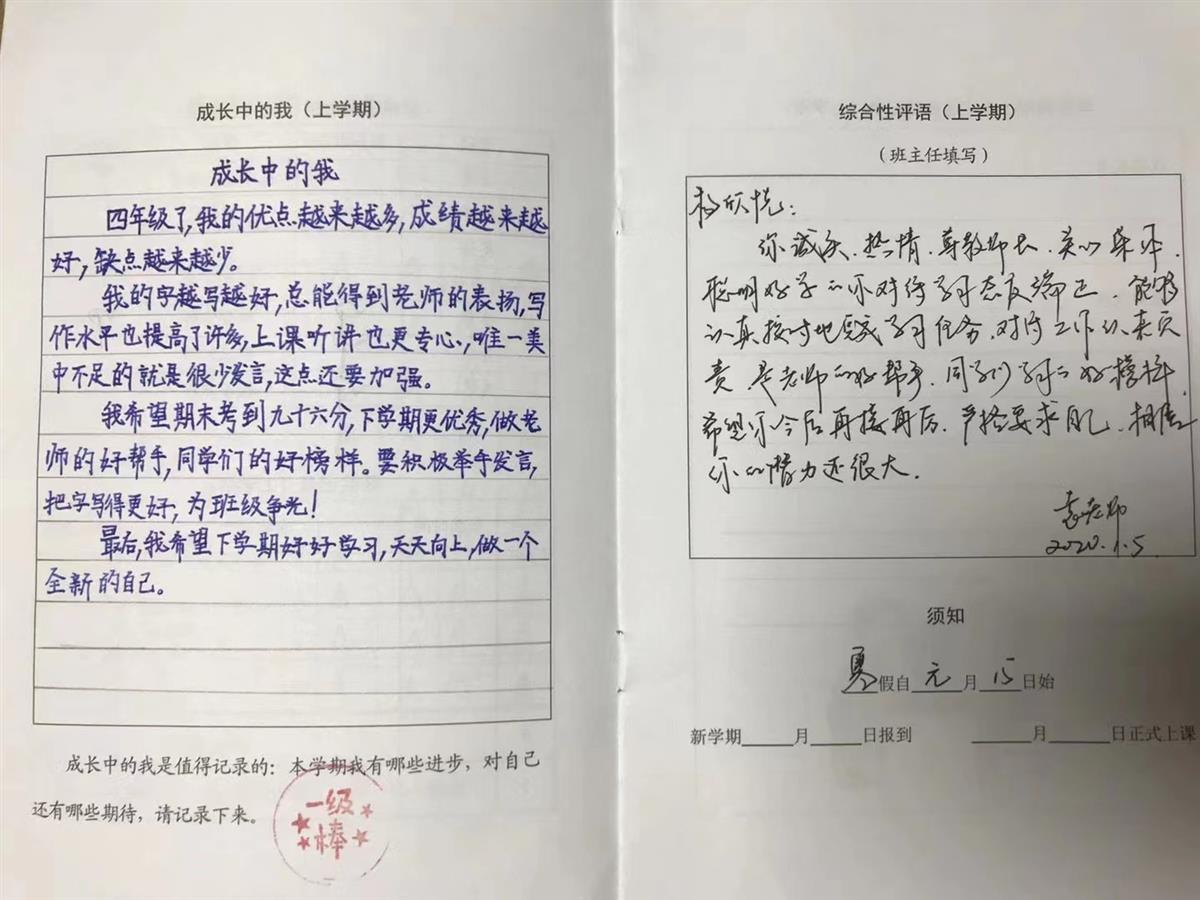 成长中的我（上学期）
成长中的我
四年级了，我的优点越来越多，成绩越来越
好，缺点越来越少。
我的字越写越好，总能得到老师的表扬，写
作水平也提高了许多，上课听讲也更专心，唯一美
中不足的就是很少发言，这点还要加强。
我希望期末考到九十六分，下学期更优秀，做老
师的好帮手，同学们的好榜样。要积极举手发言，
把字写得更好，为班级争光！
最后，我希望下学期好好学习，天天向上，做一个
全新的自己。
成长中的我是值得记录的：本学期我有哪些进步，对自己
还有哪些期待，请记录下来。
一级
棒
综合性评语（上学期）
（班主任填写）
杨欣悦：
你诚实、热情、尊敬师长、关心集体，
聪明好学的你对待学习态度端正，能够
认真按时地完成学习任务，对待工作认真负
责，是老师的好帮手，同学们学习的好榜样，
希望你今后再接再厉，严格要求自己，相信
你的潜力还很大。
袁老师
2020.1.5
须知
寒假自元月15日始
新学期 月 日报到 月 日正式上课